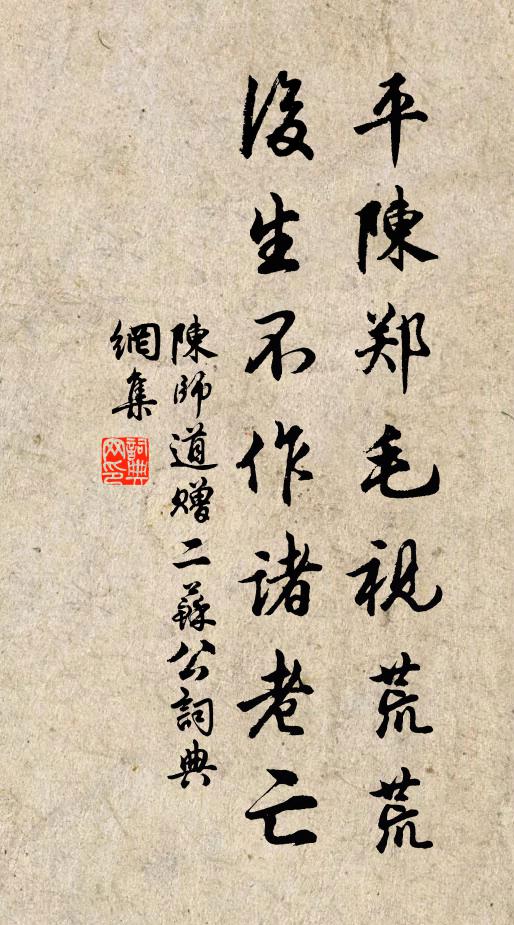 平陳郑毛視荒荒
後生不作诸老亡
陳師道赠二蘇公詞典
網集
詞典网印